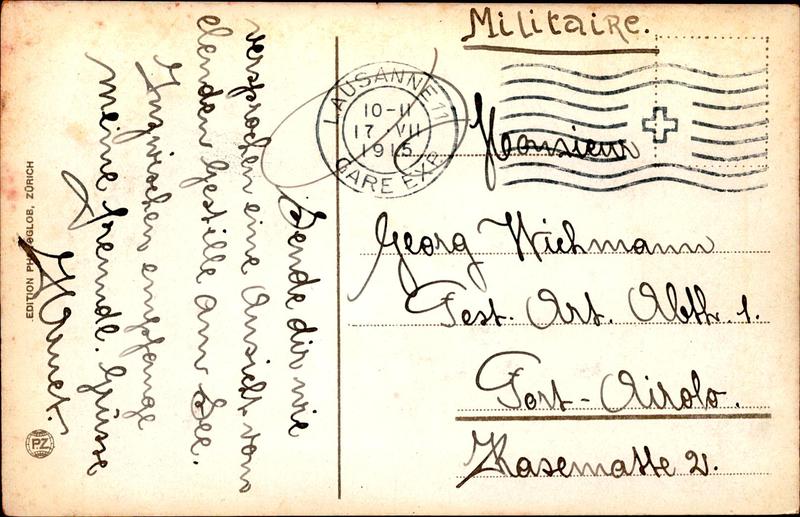 Militaire.
LAUSANNE 11
10-11
17. VII
1915
GARE EXP.
Monsieur
Georg Wichmann
Fest. Art. Abth. 1.
Fort-Airolo.
Kasematte 2.
Sende dir wie
versprochen eine Ansicht vom
elenden Gestille am See.
Inzwischen empfange
meine freundl. Grüsse
EDITION PHOTOGLOB, ZÜRICH
P.Z.